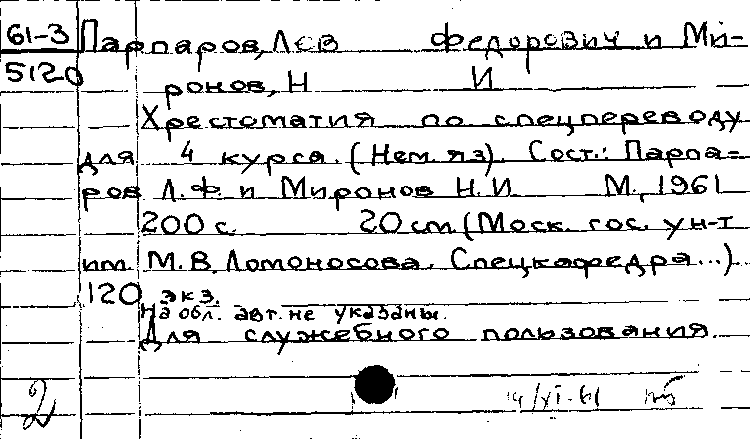 61-3 Парпаров, Лев Федорович и Ми-
5120 ронов, Н И
Хрестоматия по спецпереводу
для 4 курса. (Нем. яз). Сост.: Парпа-
ров Л.Ф. и Миронов Н.И. М., 1961
200 с. 20 см (Моск. гос. ун-т
им. М.В. Ломоносова. Спецкафедра...)
120 экз.
На обл. авт. не указаны.
Для служебного пользования.
2 14/XI-61